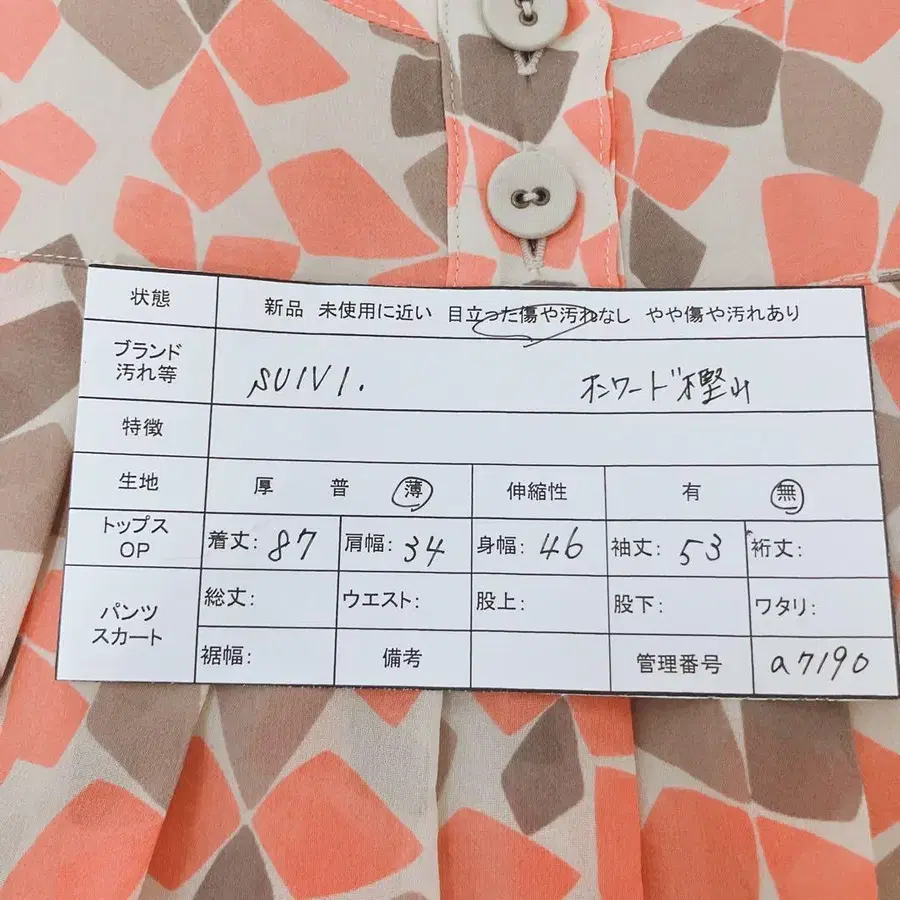 状態 新品 未使用に近い 目立った傷や汚れなし やや傷や汚れあり
ブランド
汚れ等 SUIVI. オンワード樫山
特徴
生地 厚 普 薄 伸縮性 有 無
トップス
OP 着丈: 87 肩幅: 34 身幅: 46 袖丈: 53 裄丈:
パンツ
スカート 総丈: ウエスト: 股上: 股下: ワタリ:
裾幅: 備考 管理番号 a7190